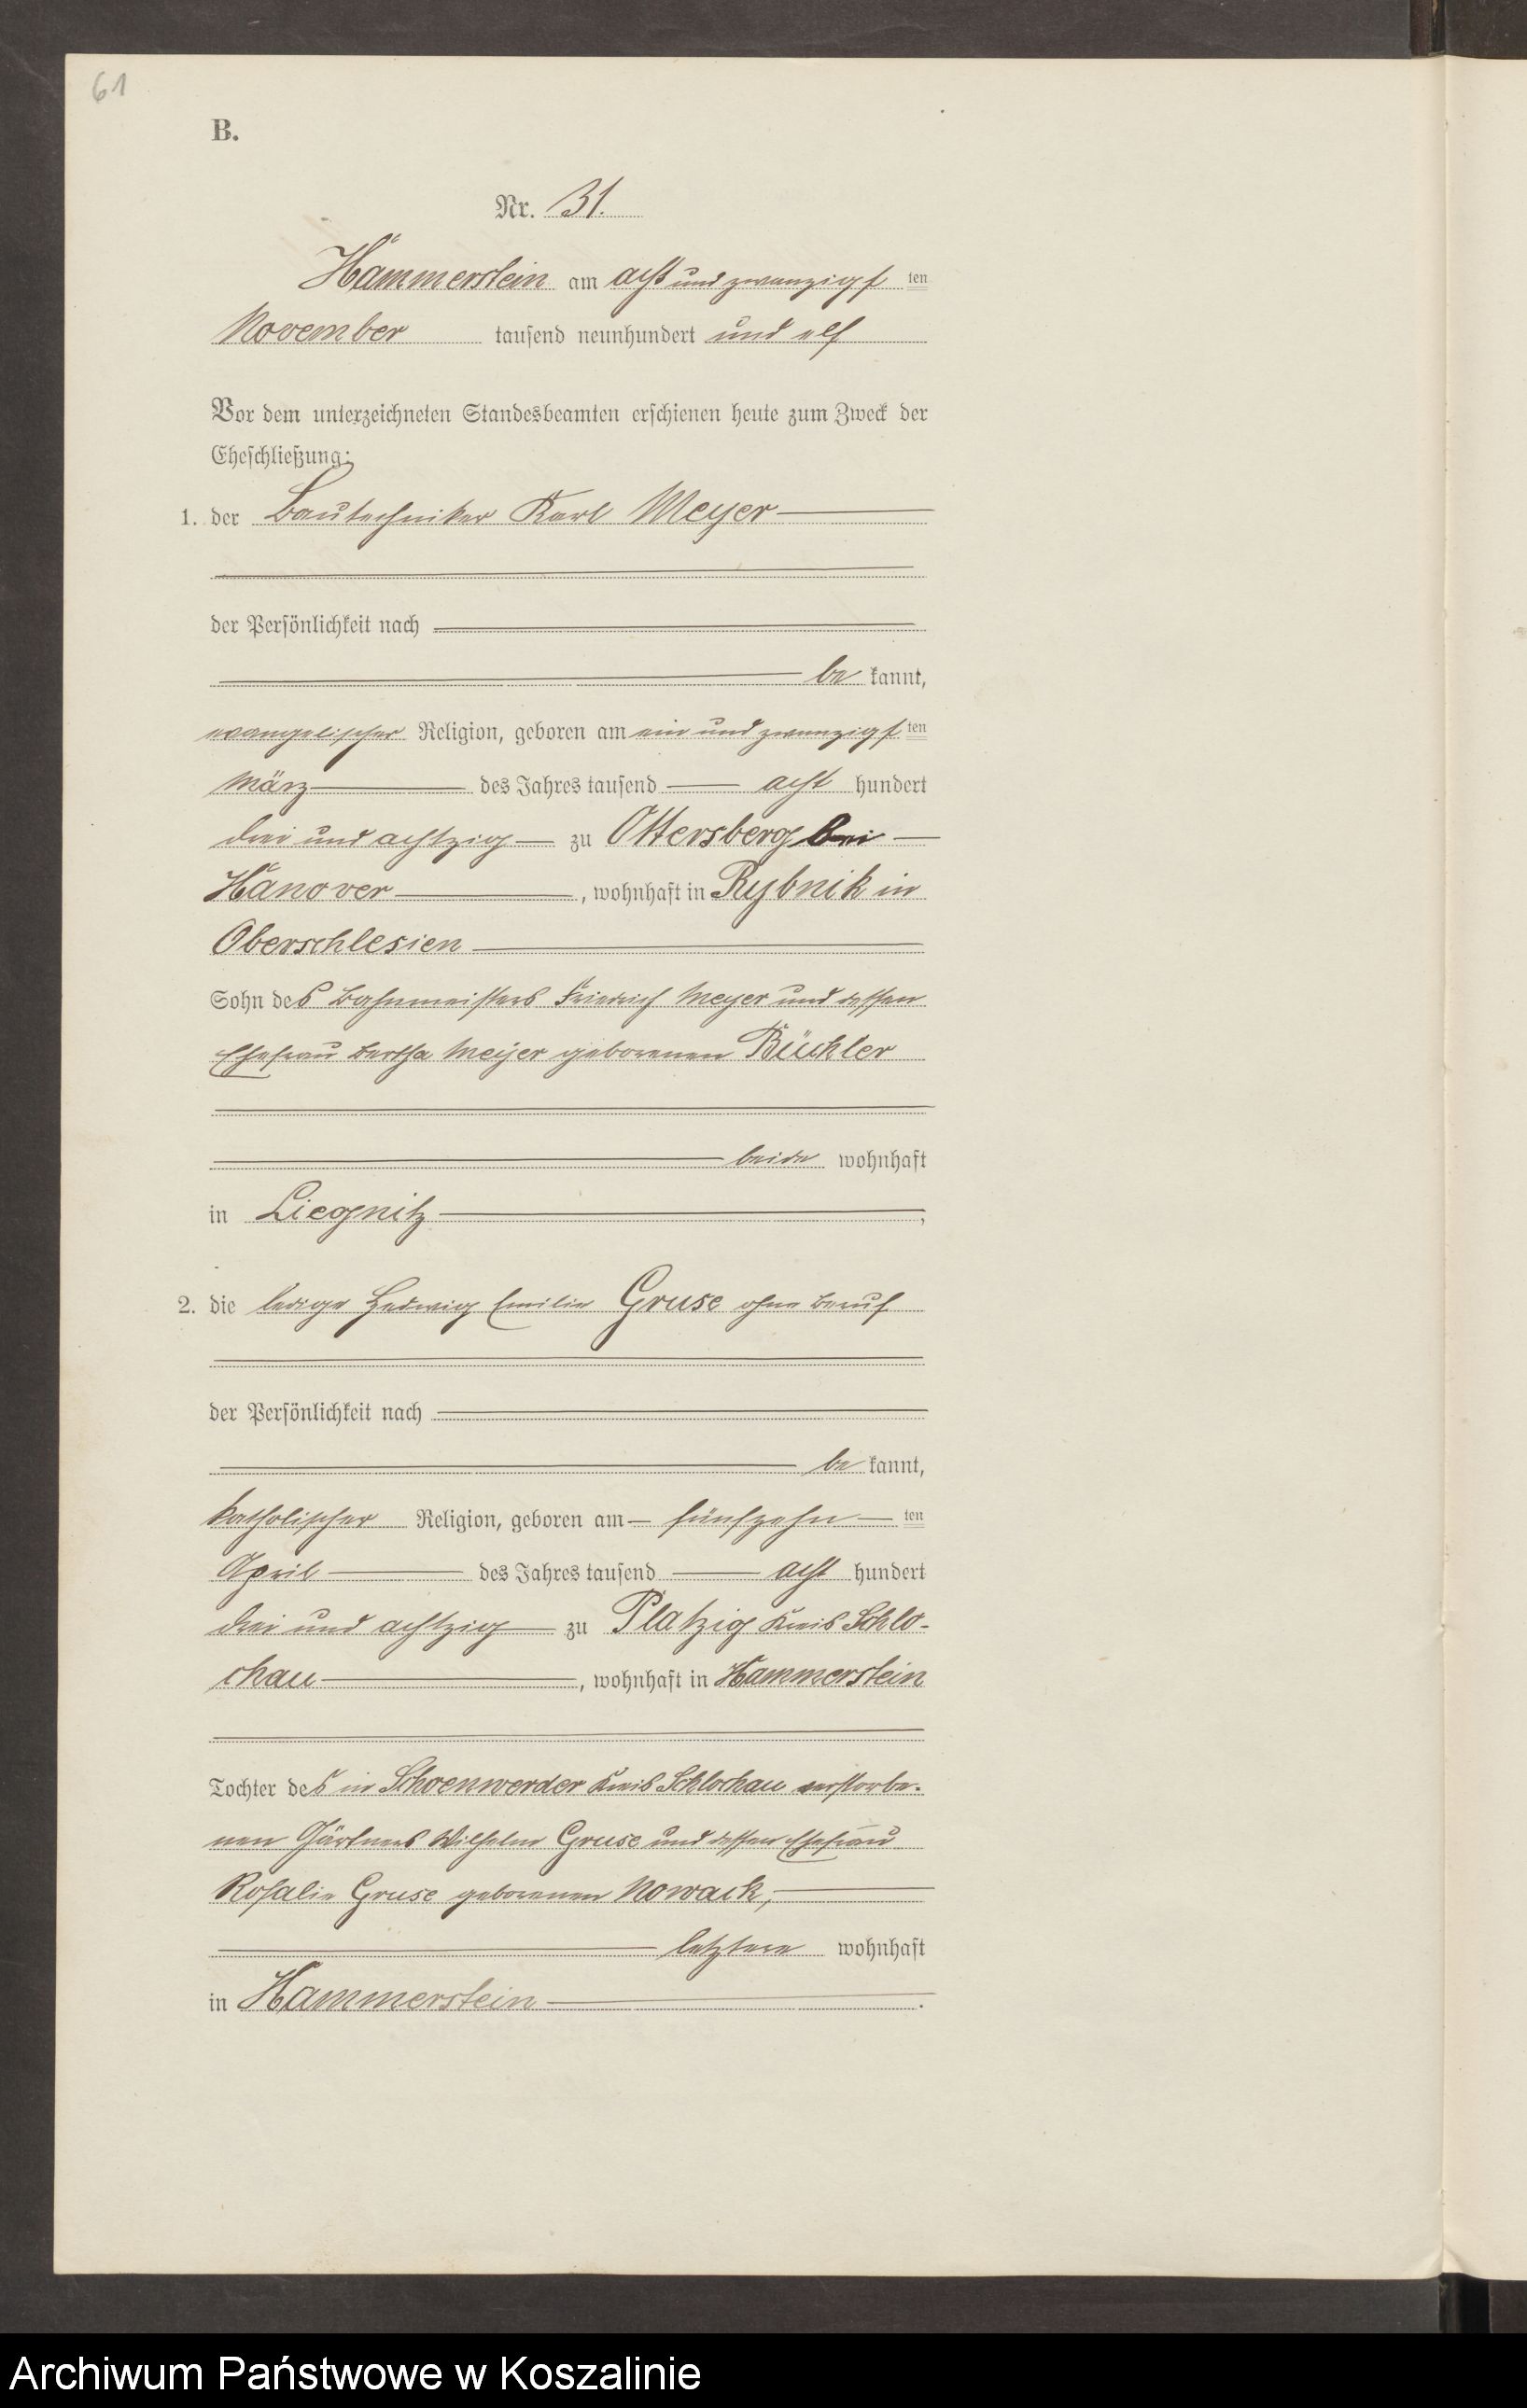 61
B.
Nr. 31.
Hammerstein am acht und zwanzigst ten
November tausend neunhundert und elf
Vor dem unterzeichneten Standesbeamten erschienen heute zum Zweck der
Eheschließung:
1. der Bautechniker Karl Meyer
der Persönlichkeit nach
be kannt,
evangelischer Religion, geboren am ein und zwanzigst ten
März des Jahres tausend acht hundert
drei und achtzig zu Ottersberg bei
Hanover, wohnhaft in Rybnik in
Oberschlesien
Sohn des Bahnmeisters Friedrich Meyer und dessen
Ehefrau Bertha Meyer geborenen Büchler
beide wohnhaft
in Liegnitz,
2. die ledige Hedwig Emilie Gruse ohne Beruf
der Persönlichkeit nach
be kannt,
katholischer Religion, geboren am fünfzehn ten
April des Jahres tausend acht hundert
drei und achtzig zu Platzig Kreis Schlo-
chau, wohnhaft in Hammerstein
Tochter des in Schoenwerder Kreis Schlochau verstorbe-
nen Gärtners Wilhelm Gruse und dessen Ehefrau
Rosalie Gruse geborenen Nowack,
letztere wohnhaft
in Hammerstein.
Archiwum Państwowe w Koszalinie